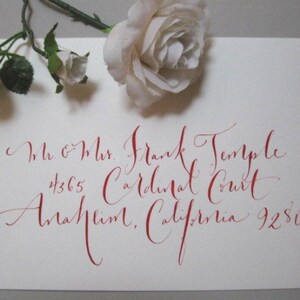 Mr. & Mrs. Frank Temple
4365 Cardinal Court
Anaheim, California